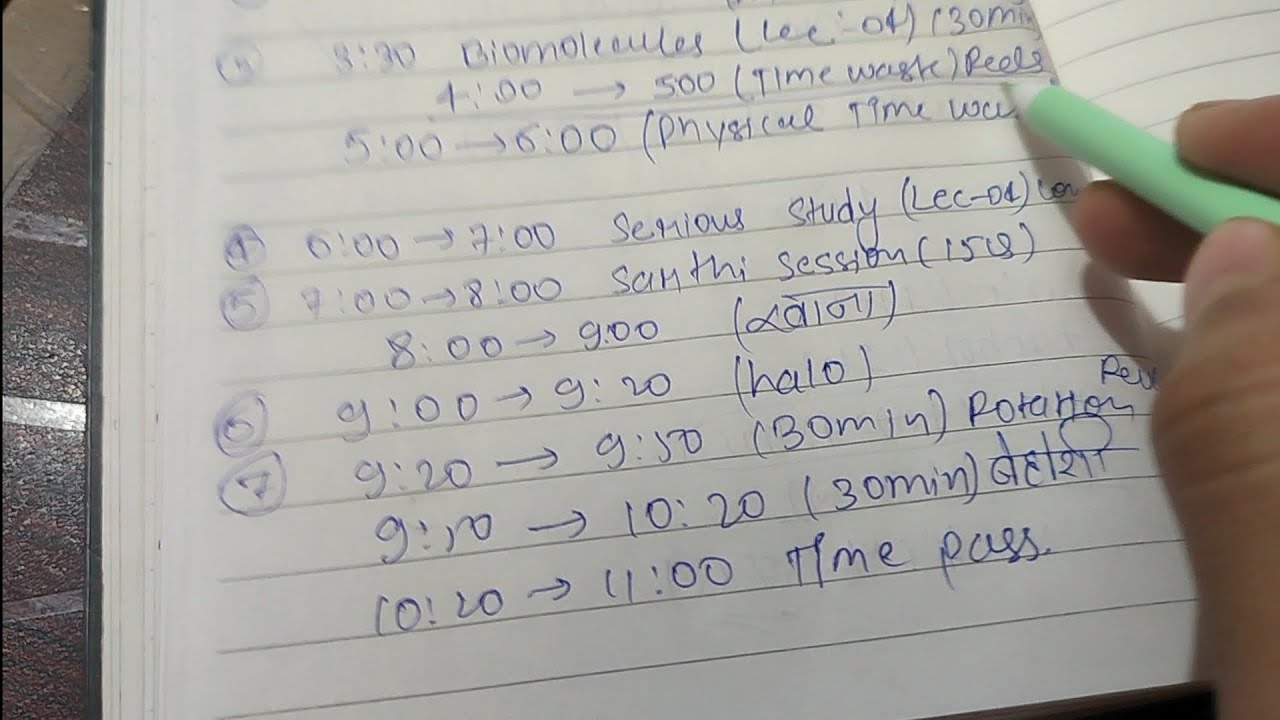 3:30 Biomolecules (Lec:-01) (30min
4:00 → 500 (Time waste) Reels
5:00 → 6:00 (Physical Time wa
④ 6:00 → 7:00 Serious Study (Lec-01)
⑤ 7:00 → 8:00 Santhi session
8:00 → 9:00 (खाना)
⑥ 9:00 → 9:20 (halo)
⑦ 9:20 → 9:50 (30min) Rotation
9:50 → 10:20 (30min) बेहोशी
10:20 → 11:00 Time pass.